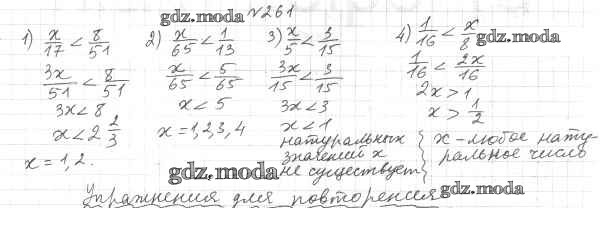 gdz.moda №261
1) x/17 < 8/51
3x/51 < 8/51
3x < 8
x < 2 2/3
x = 1, 2.
2) x/65 < 1/13
x/65 < 5/65
x < 5
x = 1, 2, 3, 4
3) x/5 < 3/15
3x/15 < 3/15
3x < 3
x < 1
натуральных
значений x
не существует
4) 1/16 < x/8
gdz.moda
1/16 < 2x/16
2x > 1
x > 1/2
x – любое нату-
ральное число
gdz.moda
Упражнения для повторения
gdz.moda